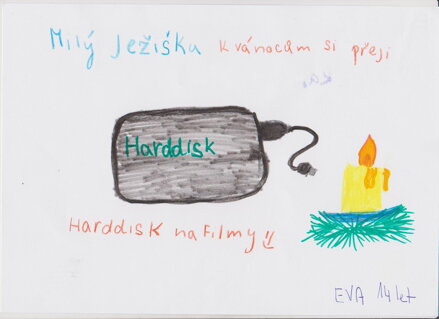 Milý Ježiška k vánocům si přeji
Harddisk
Harddisk na filmy!!
EVA 14 let